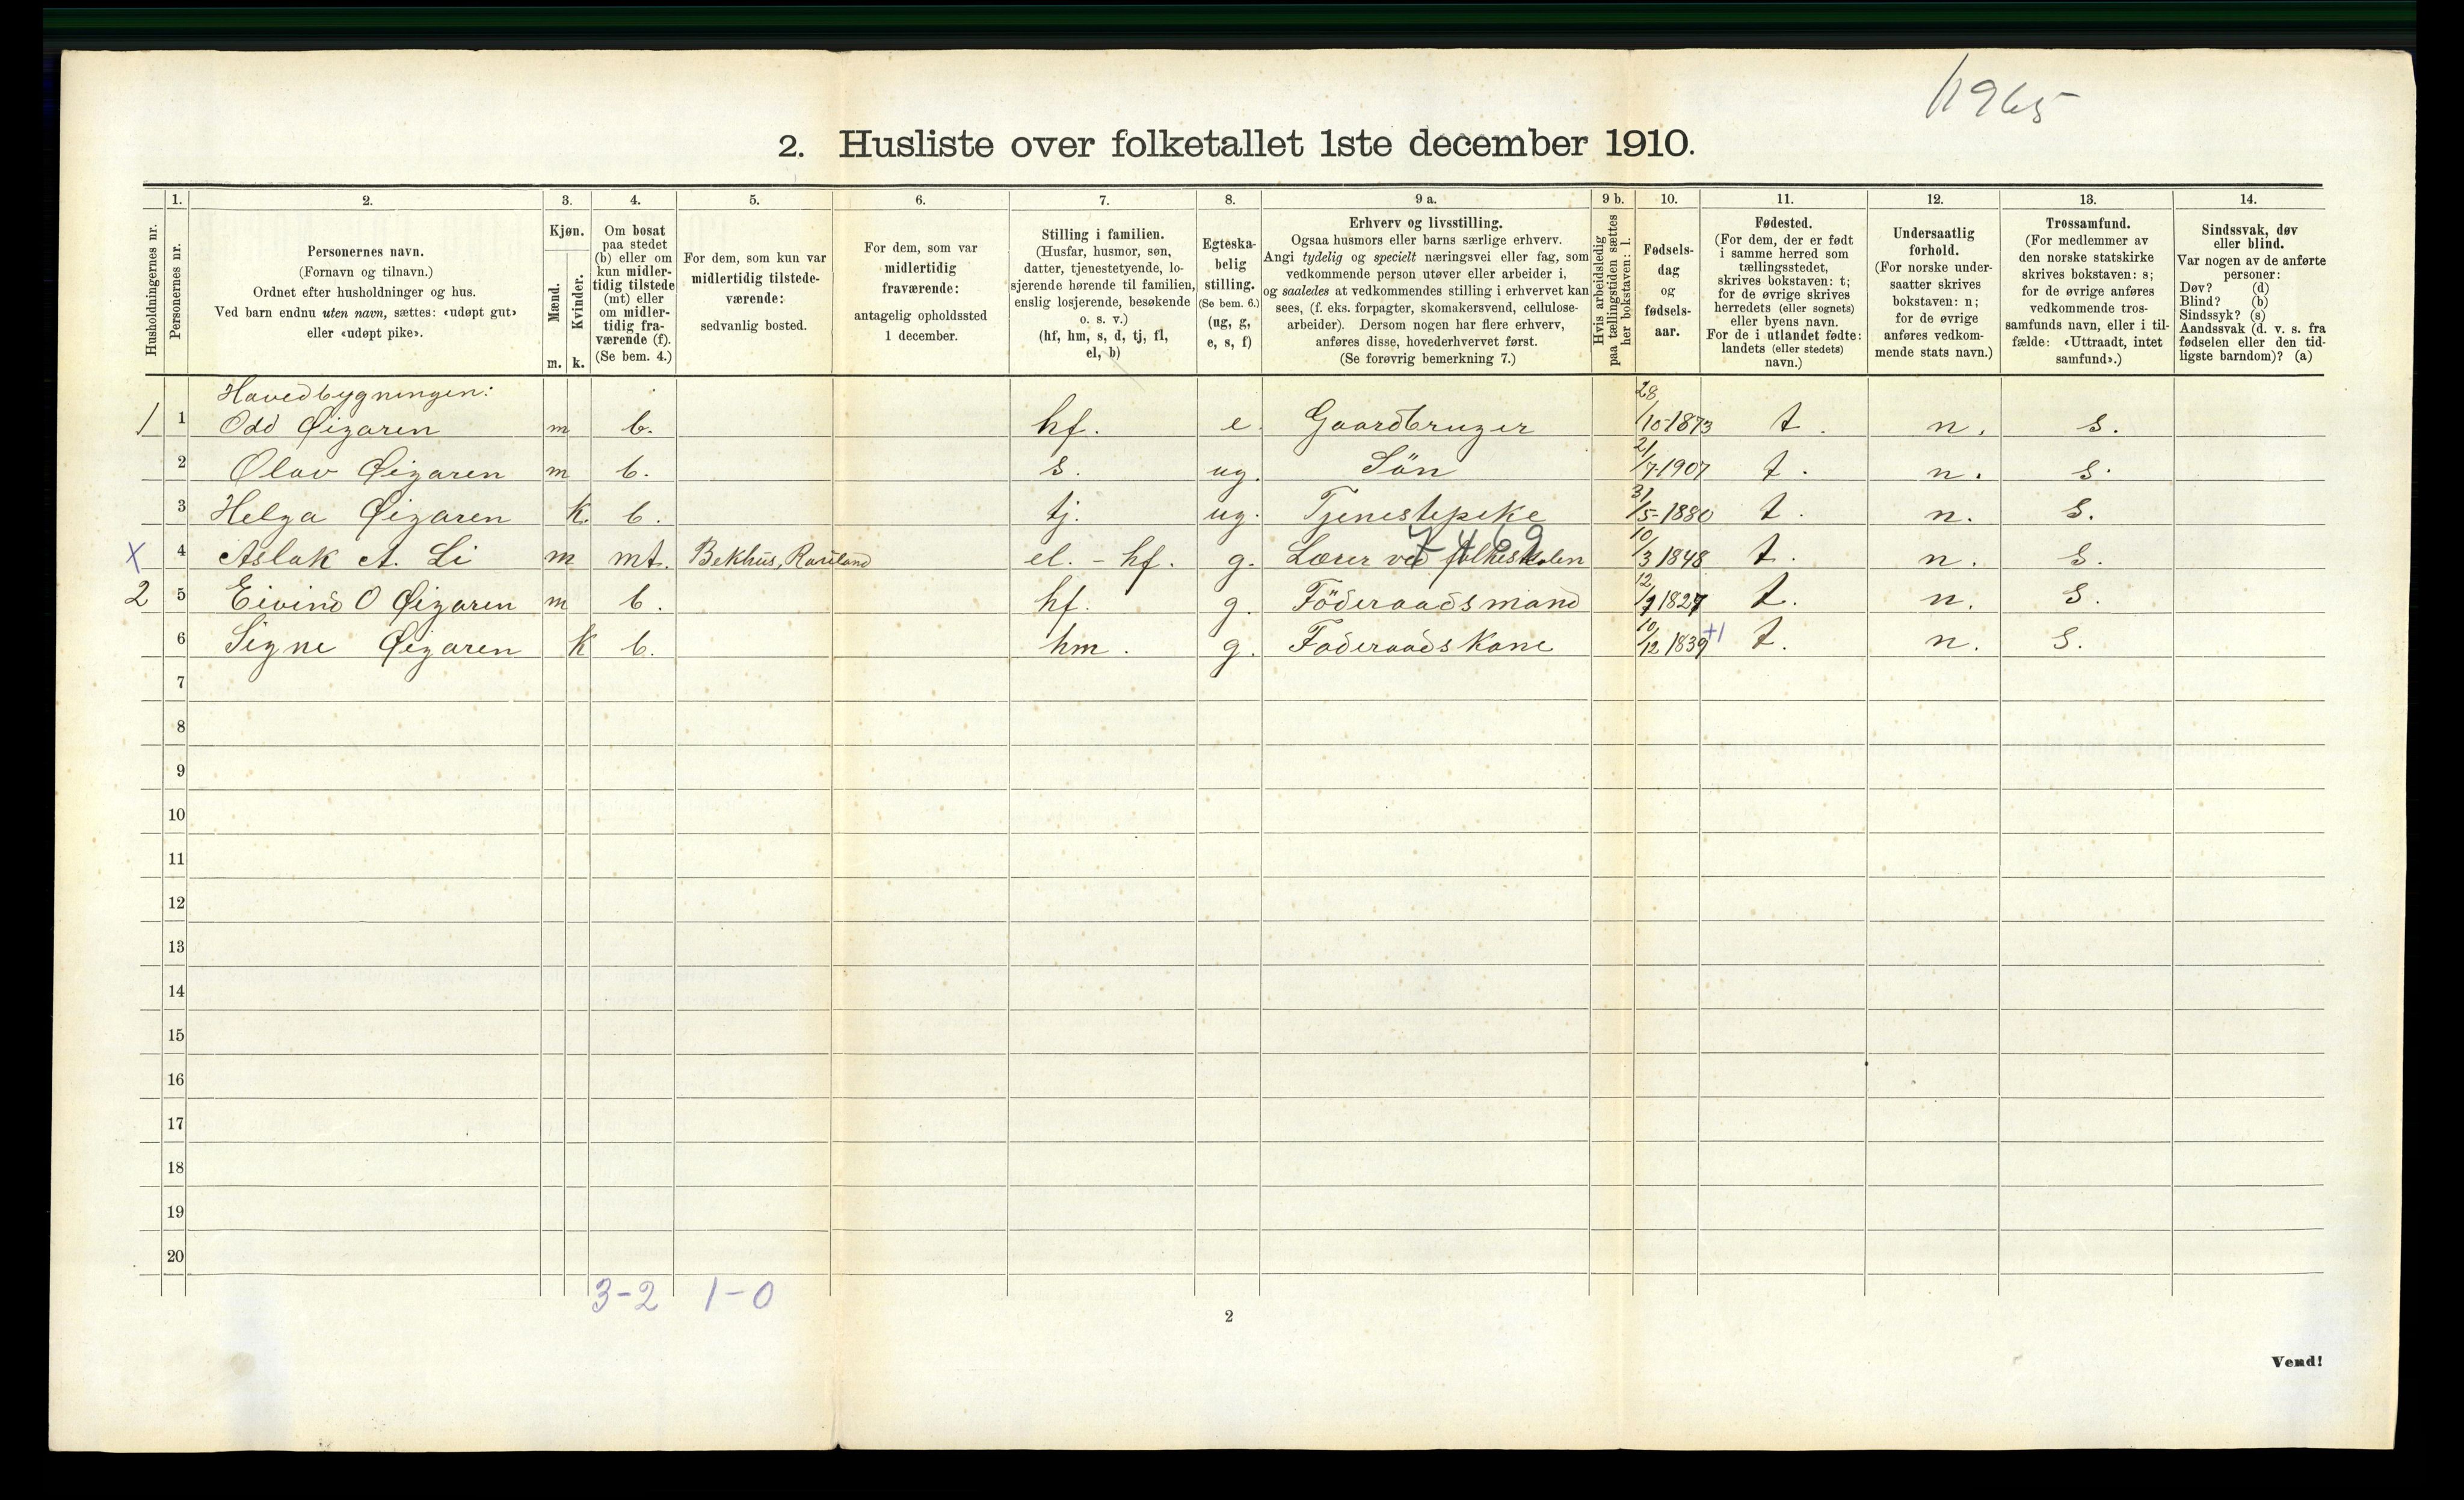 1965
2. Husliste over folketallet 1ste december 1910.
1. 2. 3. 4. 5. 6. 7. 8. 9 a. 9 b. 10. 11. 12. 13. 14.
Husholdningernes nr.
Personernes nr.
Personernes navn.
(Fornavn og tilnavn.)
Ordnet efter husholdninger og hus.
Ved barn endnu uten navn, sættes: «udøpt gut»
eller «udøpt pike».
Kjøn.
Mænd.
Kvinder.
m. k.
Om bosat
paa stedet
(b) eller om
kun midler-
tidig tilstede
(mt) eller
om midler-
tidig fra-
værende (f).
(Se bem. 4.)
For dem, som kun var
midlertidig tilstede-
værende:
sedvanlig bosted.
For dem, som var
midlertidig
fraværende:
antagelig opholdssted
1 december.
Stilling i familien.
(Husfar, husmor, søn,
datter, tjenestetyende, lo-
sjerende hørende til familien,
enslig losjerende, besøkende
o. s. v.)
(hf, hm, s, d, tj, fl,
el, b)
Egteska-
belig
stilling.
(Se bem. 6.)
(ug, g,
e, s, f)
Erhverv og livsstilling.
Ogsaa husmors eller barns særlige erhverv.
Angi tydelig og specielt næringsvei eller fag, som
vedkommende person utøver eller arbeider i,
og saaledes at vedkommendes stilling i erhvervet kan
sees, (f. eks. forpagter, skomakersvend, cellulose-
arbeider). Dersom nogen har flere erhverv,
anføres disse, hovederhvervet først.
(Se forøvrig bemerkning 7.)
Hvis arbeidsledig
paa tællingstiden sættes
her bokstaven: l.
Fødsels-
dag
og
fødsels-
aar.
Fødested.
(For dem, der er født
i samme herred som
tællingsstedet,
skrives bokstaven: t;
for de øvrige skrives
herredets (eller sognets)
eller byens navn.
For de i utlandet fødte:
landets (eller stedets)
navn.)
Undersaatlig
forhold.
(For norske under-
saatter skrives
bokstaven: n;
for de øvrige
anføres vedkom-
mende stats navn.)
Trossamfund.
(For medlemmer av
den norske statskirke
skrives bokstaven: s;
for de øvrige anføres
vedkommende tros-
samfunds navn, eller i til-
fælde: «Uttraadt, intet
samfund».)
Sindssvak, døv
eller blind.
Var nogen av de anførte
personer:
Døv? (d)
Blind? (b)
Sindssyk? (s)
Aandssvak (d. v. s. fra
fødselen eller den tid-
ligste barndom)? (a)
Hovedbygningen:
1 1 Odd Øigaren m b. hf. e Gaardbruger 28/10-1873 t. n. s.
2 Olav Øigaren m b. s. ug. Sön 21/7-1907 t. n. s.
3 Helga Øigaren k. b. tj. ug. Tjenestepike 31/5-1880 t. n. s.
7469
X 4 Aslak A. Li m mt. Bekhus, Rauland el. - hf. g. Lærer ved folkeskolen 10/3 1848 t. n. s.
2 5 Eivind O Øigaren m b. hf. g. Föderaadsmand 12/9 1827 t. n. s.
6 Signe Øigaren k b. hm. g. Foderaadskone 10/12 1839 +1 t. n. s.
7
8
9
10
11
12
13
14
15
16
17
18
19
20
3-2 1-0
2
Vend!